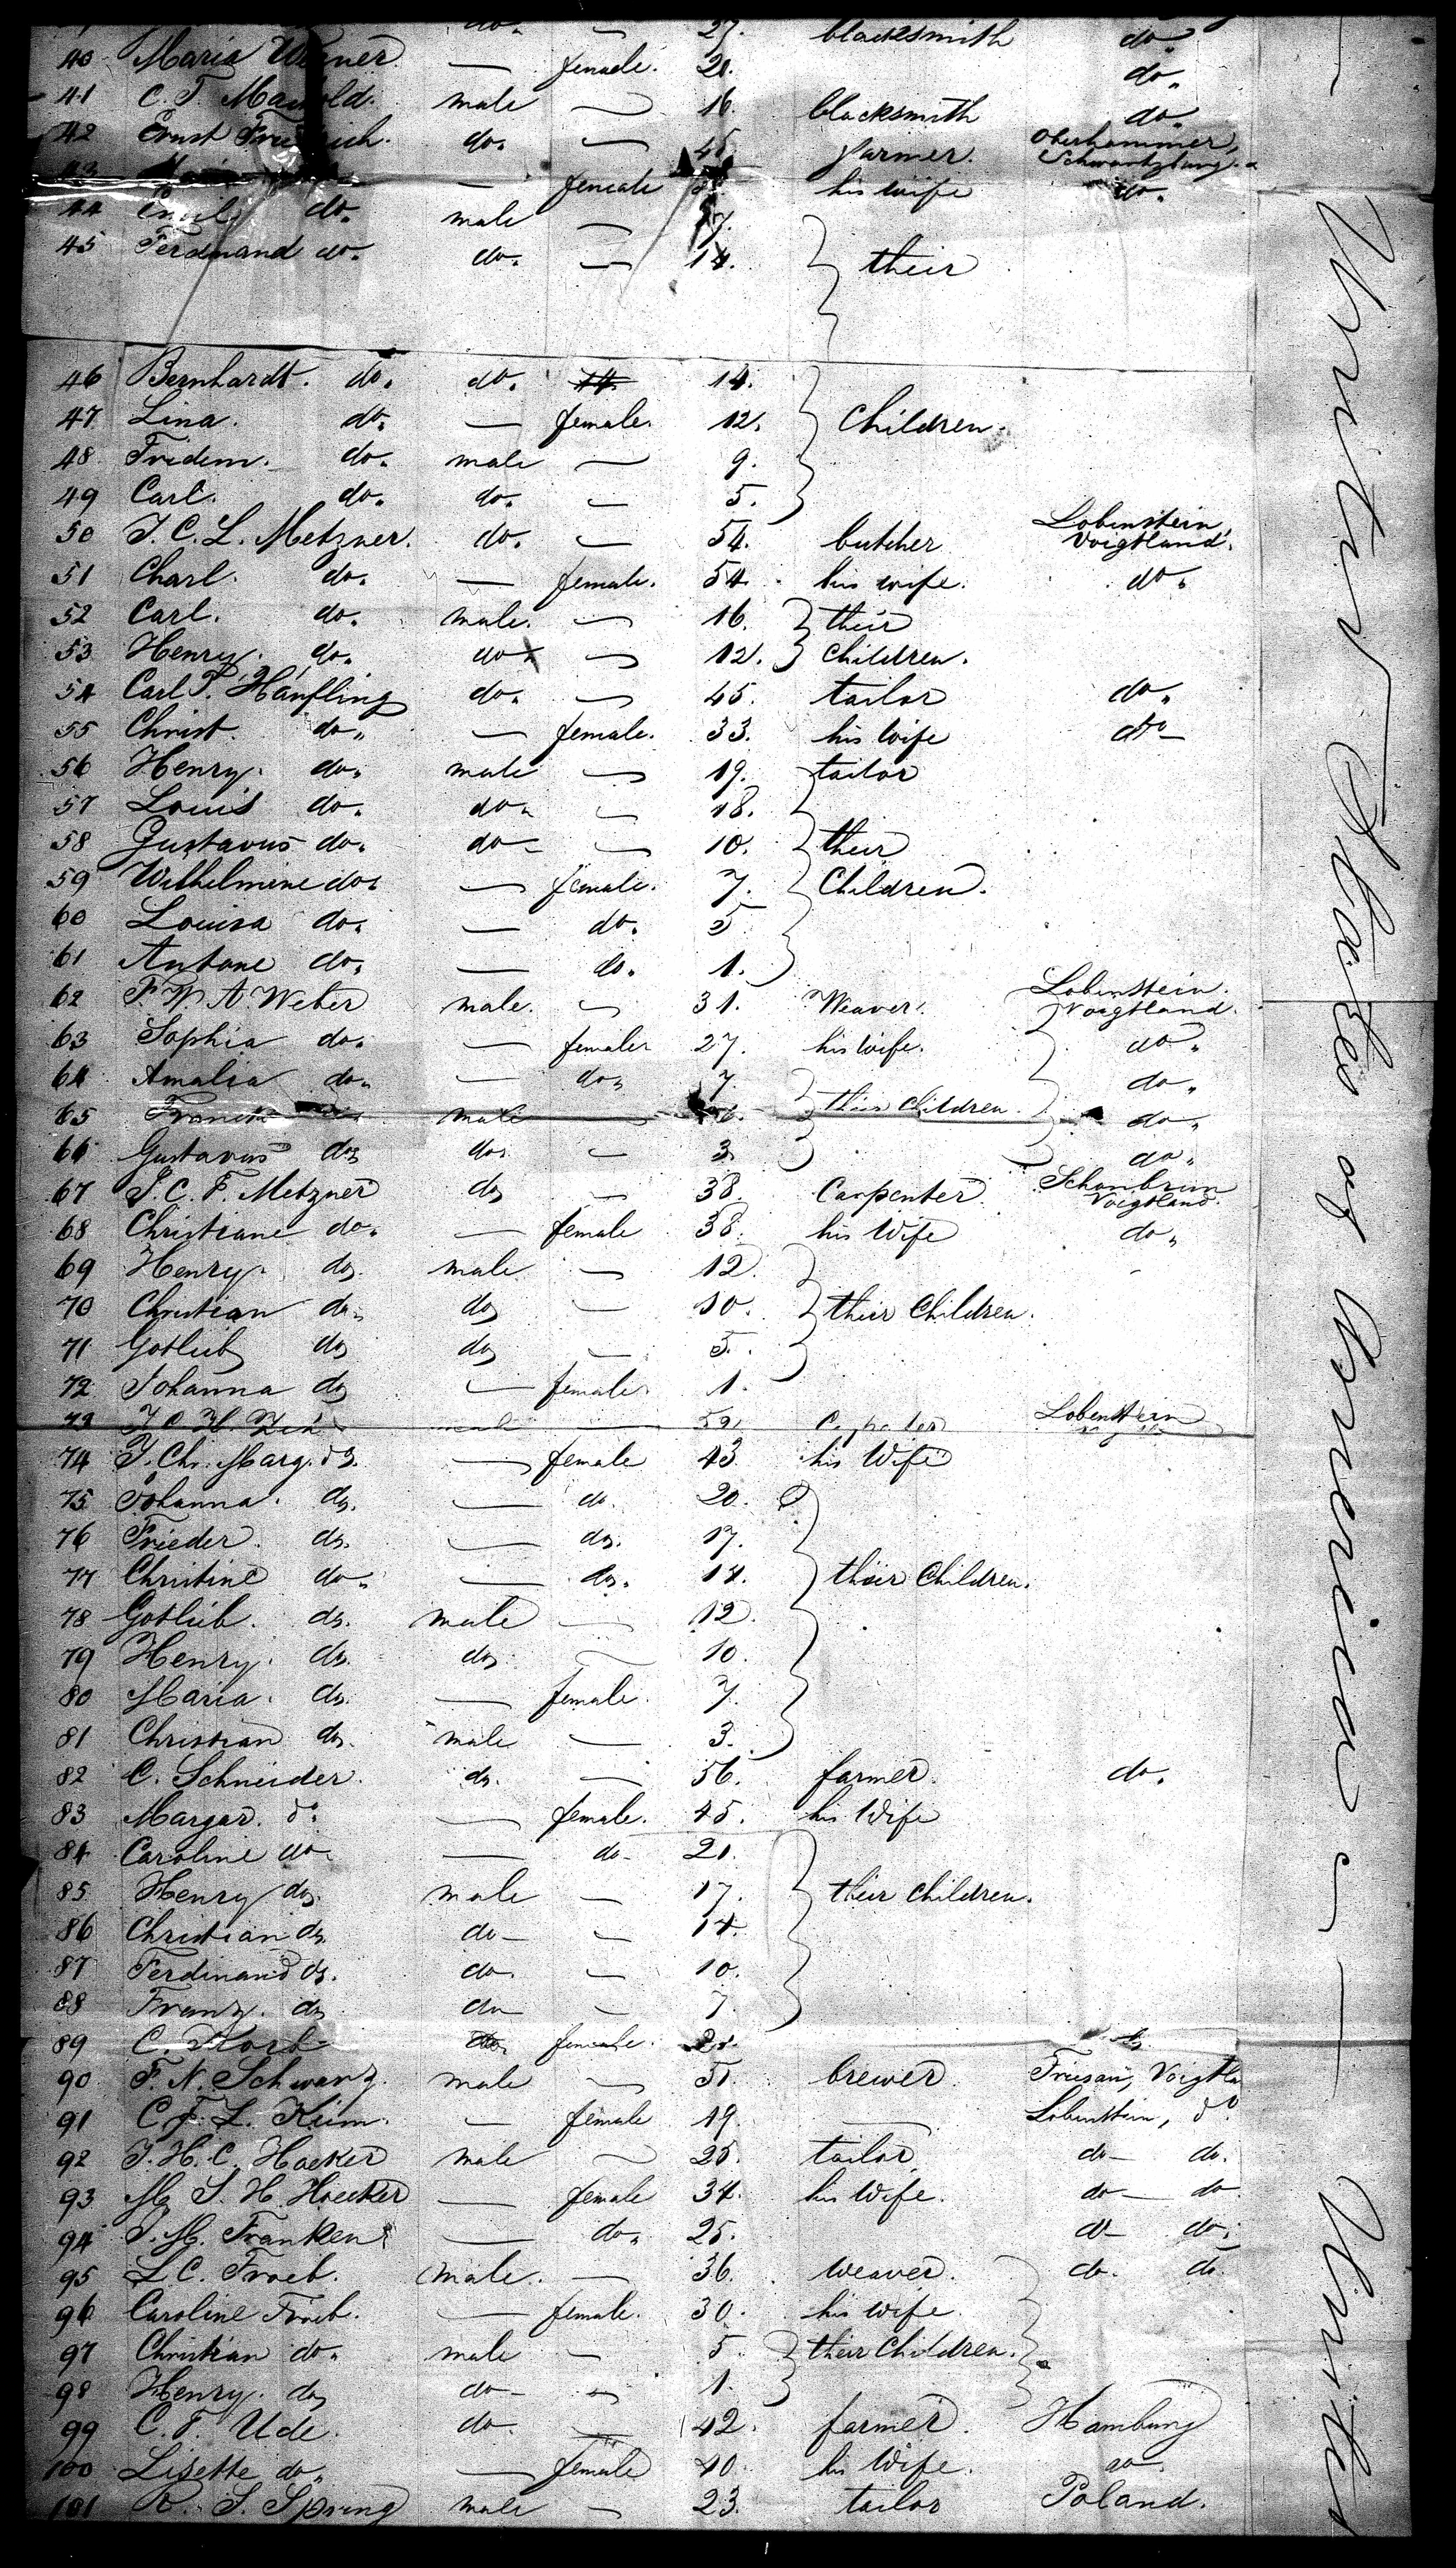 do. — 27. blacksmith do.
40 Maria Werner — female. 21. do.
41 C. F. male — 16. blacksmith do.
42 Ernst do. — 45 farmer. Schwartzburg.
43 — female his wife do.
44 Emil do. male — 7.
45 Ferdinand do. do. — 14. their
46 Bernhardt. do. do. 14.
47 Lina. do. — female. 12. Children.
48 Fridem. do. male — 9.
49 Carl. do. do. — 5.
50 J. C. L. Metzner. do. — 54. butcher Lobenstein, Voigtland.
51 Charl. do. — female. 54. his wife. do.
52 Carl. do. male. — 16. their
53 Henry. do. do — 12. Children.
54 Carl F. Hanfling do. — 45. tailor do.
55 Christ. do. — female. 33. his wife do
56 Henry. do. male — 19. tailor
57 Louis do. do. — 18.
58 Gustavus do. do — 10. their
59 Wilhelmine do. — female. 7. Children.
60 Louisa do. — do. 5
61 Antone do. — do. 1.
62 F. W. A. Weber male. — 31. Weaver. Lobenstein. Voigtland.
63 Sophia do. — female 27. his wife. do.
64 Amalia do. — do. 7. their children. do.
65 male 6. do.
66 Gustavus do. do. — 3. do.
67 J. C. F. Metzner do. — 38. Carpenter Schonbrun Voigtland.
68 Christiane do. — female 38. his Wife do.
69 Henry. do. male — 12.
70 Christian do. do. — 10. their Children.
71 Gotlieb do. do. — 5.
72 Johanna do. — female. 1.
73 male — Lobenstein
74 J. Chr. Marg. do. — female 43 his Wife
75 Johanna. do. — do. 20.
76 Frieder. do. — do. 17.
77 Christine do. — do. 14. their Children.
78 Gotlieb. do. male — 12.
79 Henry. do. do. — 10.
80 Maria. do. — female. 7.
81 Christian do. male — 3.
82 C. Schneider. do. — 56. farmer. do.
83 Margar. do. — female. 45. his Wife
84 Caroline do — do. 21.
85 Henry do. male — 17. their children.
86 Christian do. do — 14.
87 Ferdinand do. do. — 10.
88 Franz. do. do — 7.
89 C. Korb female.
90 F. N. Schwarz. male — 51. brewer. Friesau, Voigtla
91 C. F. L. Keim. — female 19. — Lobenstein, do.
92 J. H. C. Hoeker male — 25. tailor do — do.
93 M. S. H. Hoecker — female 34. his Wife. do — do
94 J. M. Franken — do. 25. do — do.
95 L. C. Froeb. male. — 36. weaver. do. do.
96 Caroline Froeb. — female. 30. his wife.
97 Christian do. male — 5. their Children.
98 Henry. do. do — 1.
99 C. F. Ude. do. — 42. farmer. Hamburg
100 Lisette do. — female 40. his Wife. do.
101 R. S. Spring male — 23. tailor Poland.
— United States of America — United